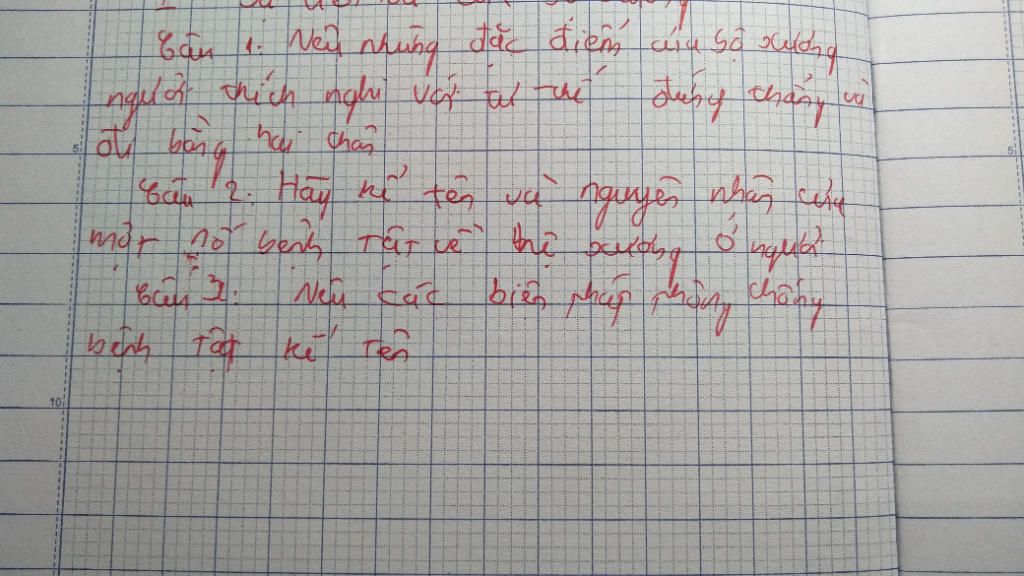 Câu 1: Nêu những đặc điểm của bộ xương
người thích nghi với tư thế đứng thẳng và
đi bằng hai chân
Câu 2: Hãy kể tên và nguyên nhân của
một số bệnh tật về hệ xương ở người
Câu 3: Nêu các biện pháp phòng chống
bệnh tật kể tên
5
5
10